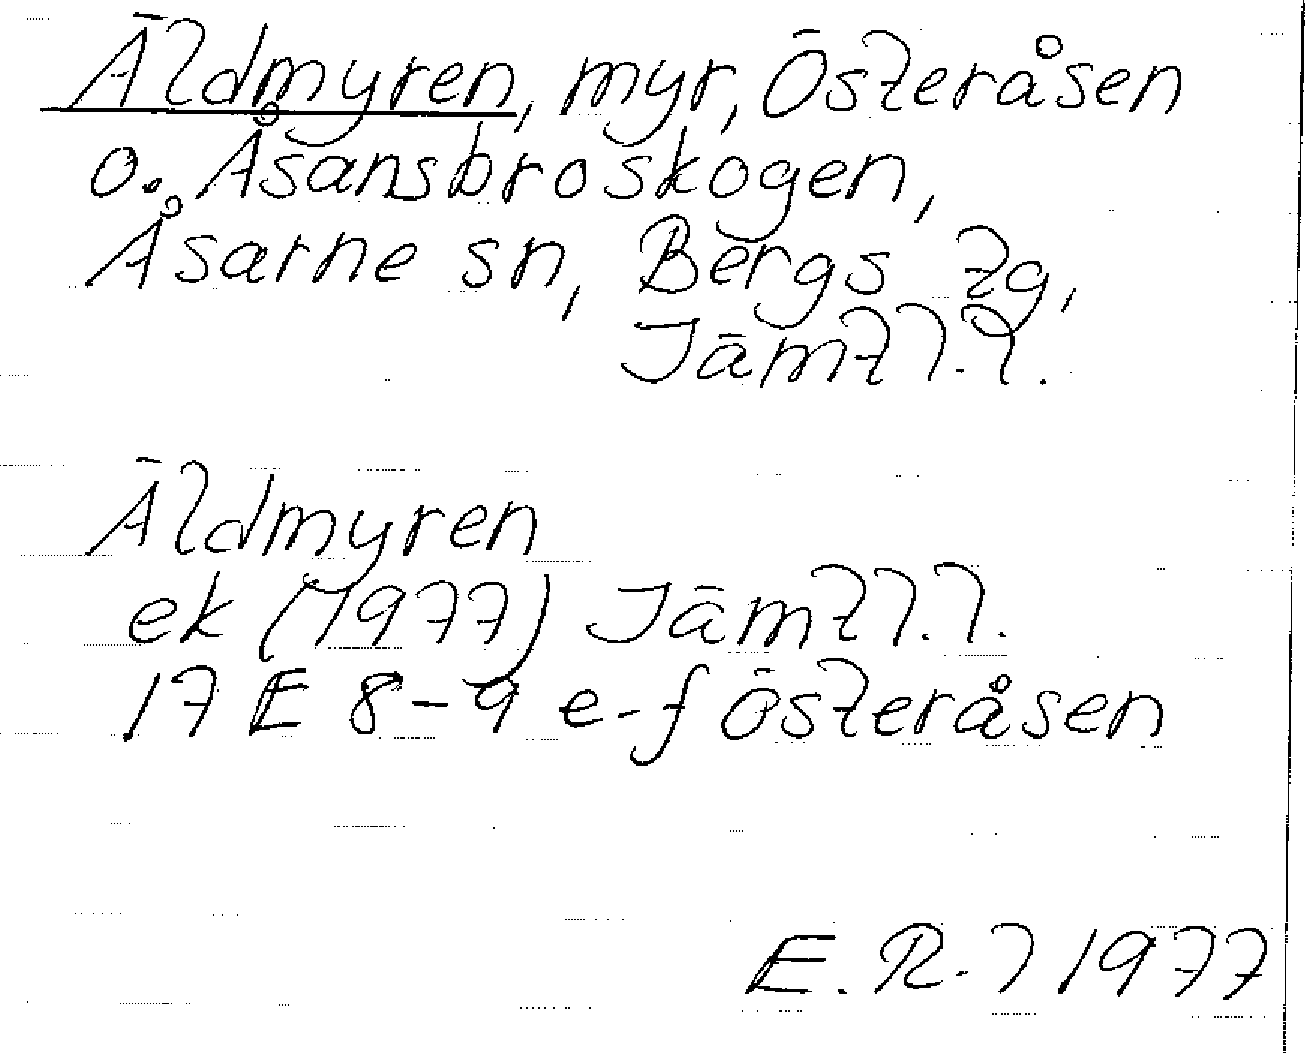 Äldmyren, myr, Österåsen
o. Åsansbroskogen,
Åsarne sn, Bergs tg,
Jämtl.l.
Äldmyren
ek (1977) Jämtl.l.
17 E 8-9 e-f Österåsen
E. R-l 1977